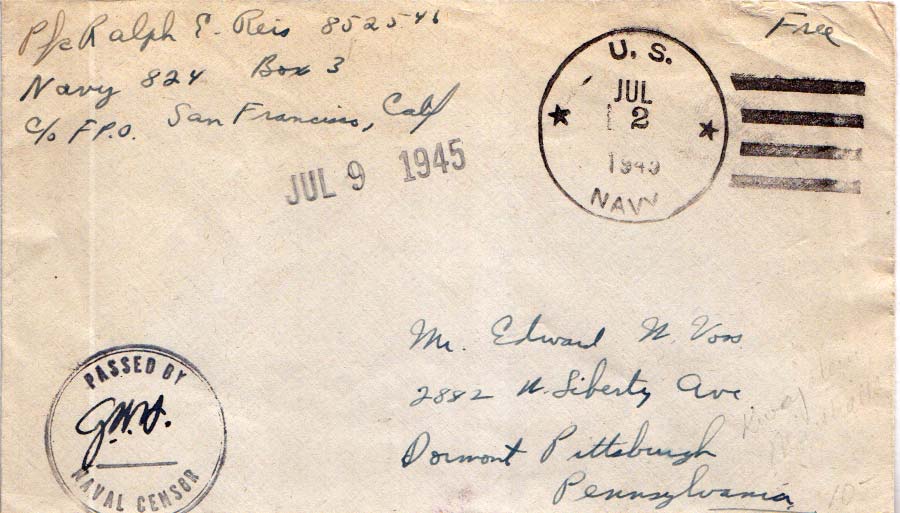 Pfc Ralph E. Reis 852546
Navy 824 Box 3
c/o F.P.O. San Francisco, Calif
Free
U. S.
JUL
2
1945
NAVY
JUL 9 1945
Mr. Edward N. Voss
2882 W. Liberty Ave
Dormont Pittsburgh
Pennsylvania
PASSED BY
J.W.S.
NAVAL CENSOR